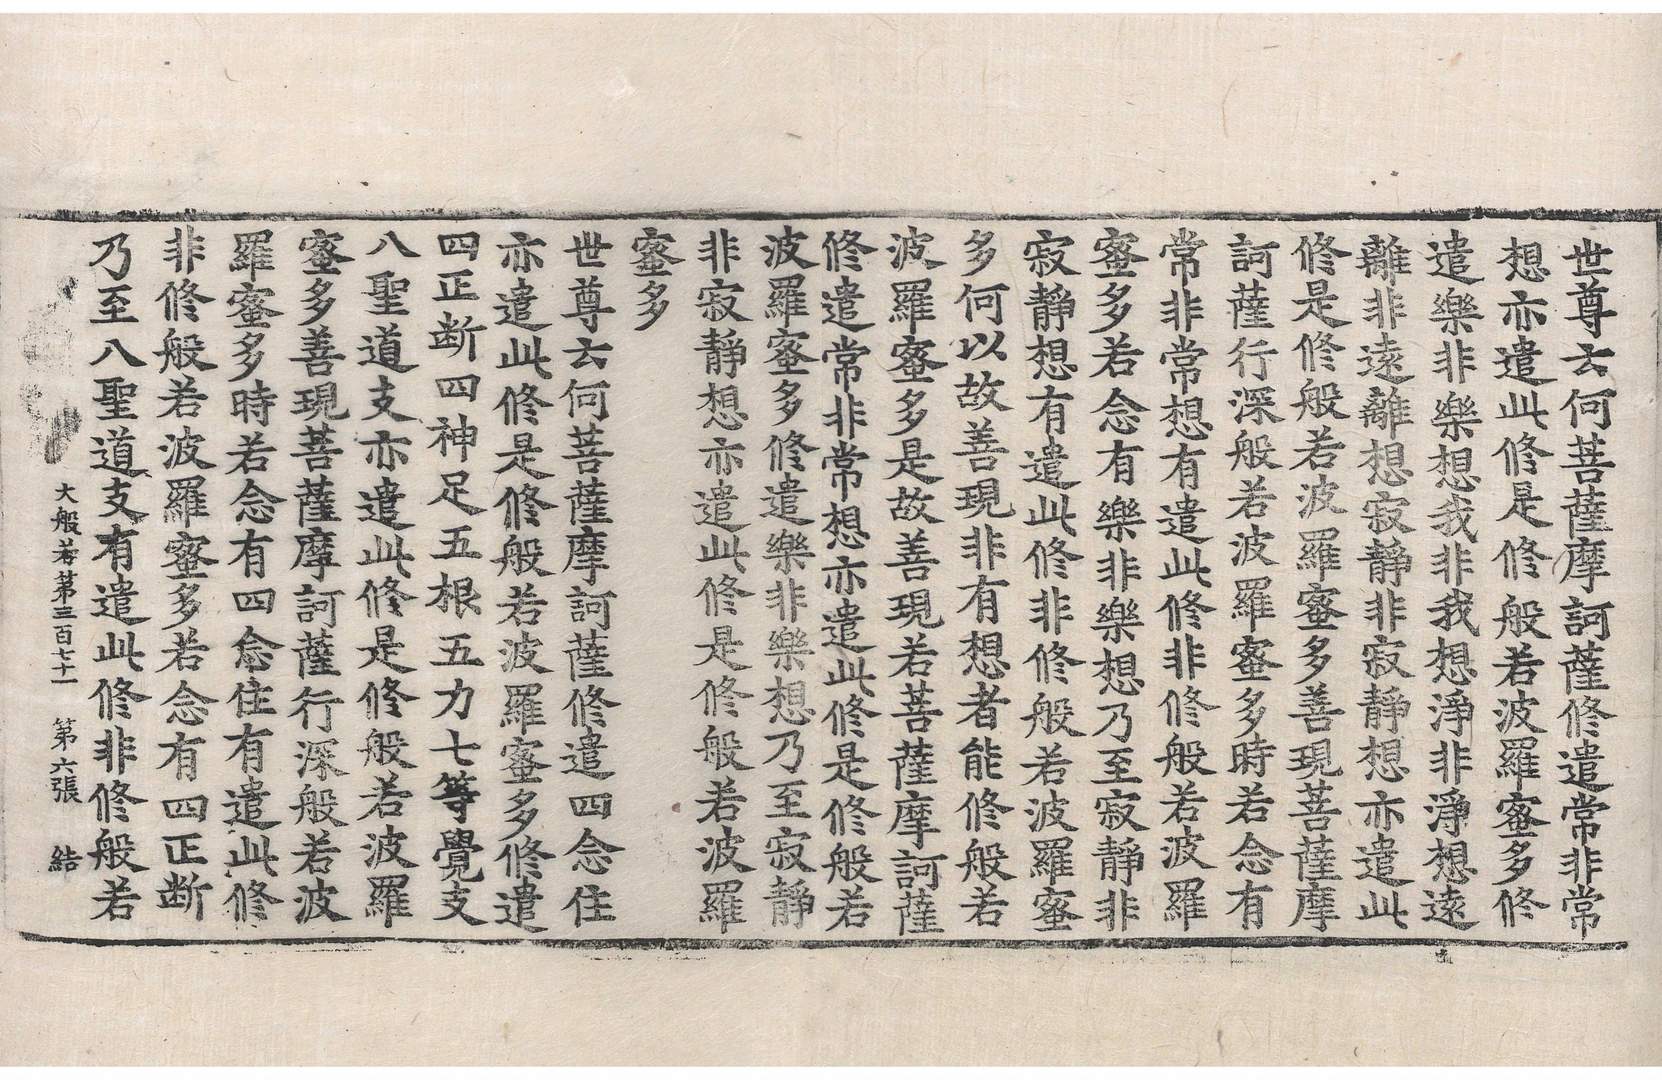 世尊云何菩薩摩訶薩修遣常非常
想亦遣此修是修般若波羅蜜多修
遣樂非樂想我非我想淨非淨想遠
離非遠離想寂靜非寂靜想亦遣此
修是修般若波羅蜜多善現菩薩摩
訶薩行深般若波羅蜜多時若念有
常非常想有遣此修非修般若波羅
蜜多若念有樂非樂想乃至寂靜非
寂靜想有遣此修非修般若波羅蜜
多何以故善現非有想者能修般若
波羅蜜多是故善現若菩薩摩訶薩
修遣常非常想亦遣此修是修般若
波羅蜜多修遣樂非樂想乃至寂靜
非寂靜想亦遣此修是修般若波羅
蜜多
世尊云何菩薩摩訶薩修遣四念住
亦遣此修是修般若波羅蜜多修遣
四正斷四神足五根五力七等覺支
八聖道支亦遣此修是修般若波羅
蜜多善現菩薩摩訶薩行深般若波
羅蜜多時若念有四念住有遣此修
非修般若波羅蜜多若念有四正斷
乃至八聖道支有遣此修非修般若
大般若第三百七十一 第六張 結